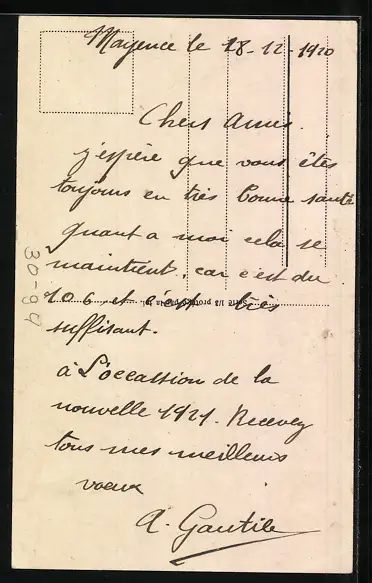 Mayence le 18-12-1920
Chers Amis.
j'espère que vous êtes
toujours en très bonne santé
quant a moi cela se
maintient, car c'est du
106 et c'est très
suffisant.
à L'occassion de la
nouvelle 1921. Recevez
tous mes meilleurs
voeux
A. Gautile
Série 1/8
30-94